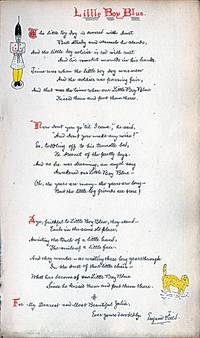 Little Boy Blue.
The little toy dog is covered with dust
But sturdy and staunch he stands,
And the little toy soldier is red with rust
And his musket moulds in his hands;
Time was when the little toy dog was new
And the soldier was passing fair,
And that was the time when our Little Boy Blue
Kissed them and put them there.
"Now don't you go till I come," he said,
"And don't you make any noise!"
So, toddling off to his trundle bed,
He dreamt of the pretty toys.
And as he was dreaming, an angel song
Awakened our Little Boy Blue –
Oh, the years are many – the years are long –
But the little toy friends are true!
Aye, faithful to Little Boy Blue, they stand –
Each in the same old place,
Awaiting the touch of a little hand,
The smile of a little face.
And they wonder – as waiting these long years through
In the dust of that little chair –
What has become of our Little Boy Blue
Since he kissed them and put them there.
For My Dearest and Most Beautiful Julia,
Ever yours
Eugene Field.